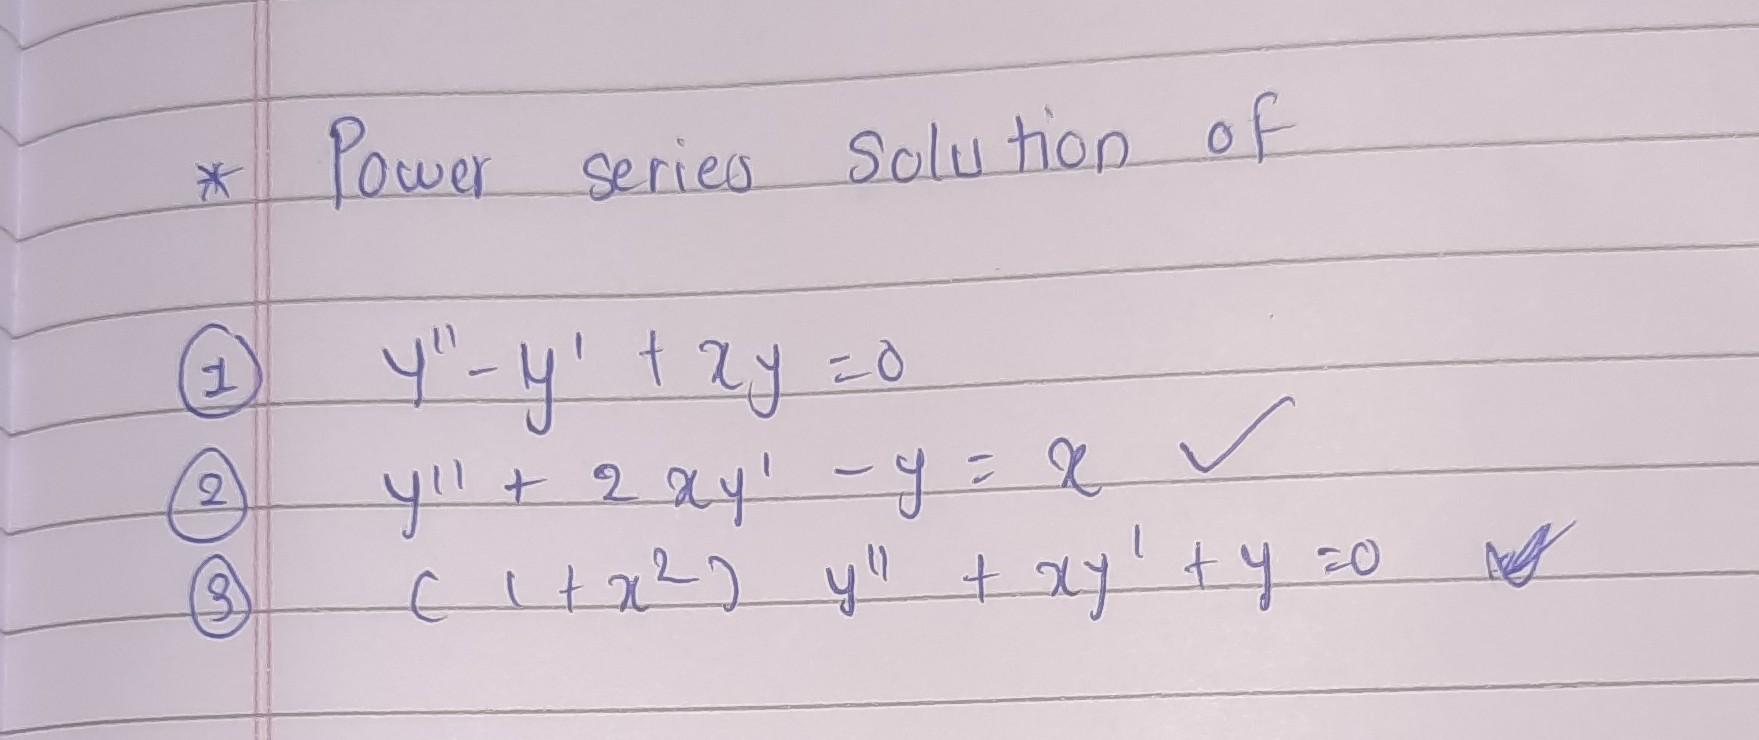 * Power series solution of
① y'' - y' + xy = 0
② y'' + 2xy' - y = x ✓
③ (1 + x²) y'' + xy' + y = 0 ✓